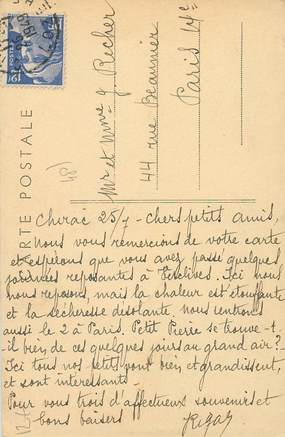 CARTE POSTALE
Mr et Mme G. Pecher
44 rue Beaunier
Paris 14e
(48)
Chirac 25/7 - chers petits amis,
nous vous remercions de votre carte
et espérons que vous avez passé quelques
journées reposantes à Ici nous
nous reposons, mais la chaleur est étouffante
et la sécheresse désolante, nous rentrons
aussi le 2 à Paris. Petit Pierre se trouve-t-
il bien de ces quelques jours au grand air?
Ici tous nos petits vont bien et grandissent,
et sont intéressants.
Pour vous trois d'affectueux souvenirs et
bons baisers